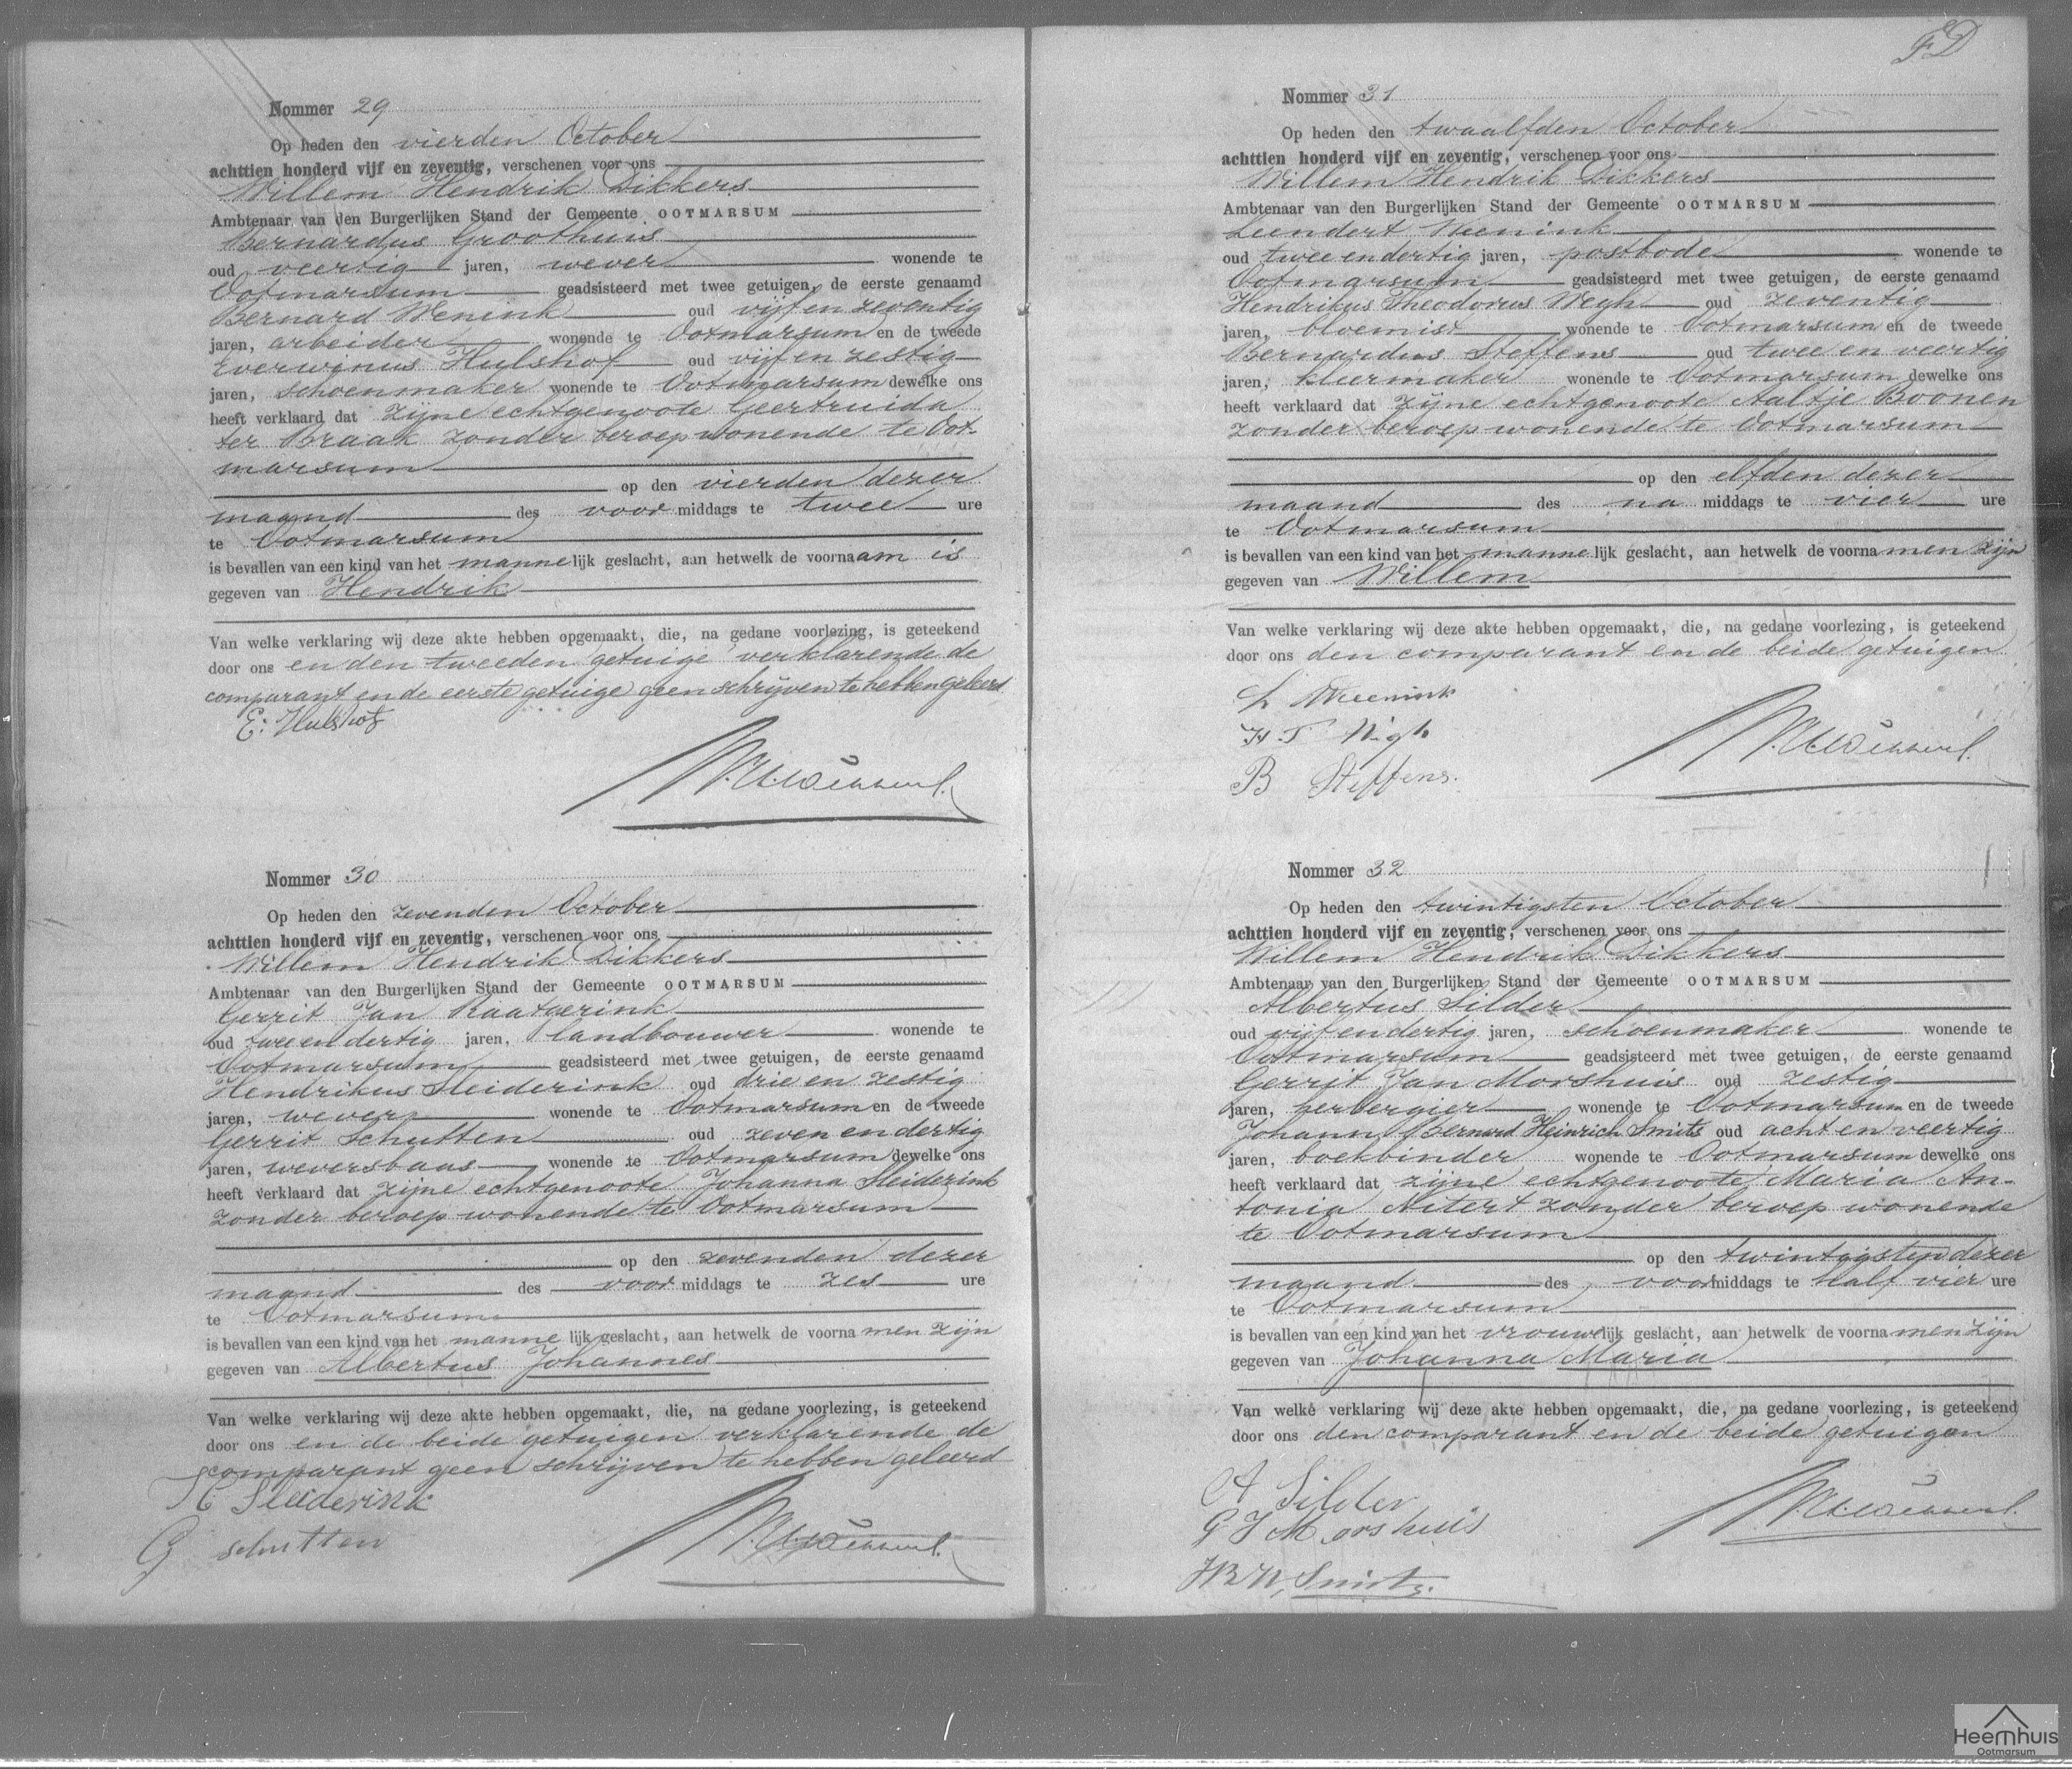 Nommer 29
Op heden den vierden October
achttien honderd vijf en zeventig, verschenen voor ons
Willem Hendrik Dikkers
Ambtenaar van den Burgerlijken Stand der Gemeente OOTMARSUM
Bernardus Groothuis
oud veertig jaren, wever wonende te
Ootmarsum geadsisteerd met twee getuigen, de eerste genaamd
Bernard Wenink oud vijf en zeventig
jaren, arbeider wonende te Ootmarsum en de tweede
Everwinus Hulshof oud vijf en zestig
jaren, schoenmaker wonende te Ootmarsum dewelke ons
heeft verklaard dat zijne echtgenoote Geertruida
ter Braak zonder beroep wonende te Oot-
marsum
op den vierden dezer
maand des voor middags te twee ure
te Ootmarsum
is bevallen van een kind van het mannelijk geslacht, aan hetwelk de voornaam is
gegeven van Hendrik
Van welke verklaring wij deze akte hebben opgemaakt, die, na gedane voorlezing, is geteekend
door ons en den tweeden getuige verklarende de
comparant en de eerste getuige geen schrijven te hebben geleerd
E: Hulshof
Nommer 30
Op heden den zevenden October
achttien honderd vijf en zeventig, verschenen voor ons
Willem Hendrik Dikkers
Ambtenaar van den Burgerlijken Stand der Gemeente OOTMARSUM
Gerrit Jan Raatgerink
oud twee en dertig jaren, landbouwer wonende te
Ootmarsum geadsisteerd met twee getuigen, de eerste genaamd
Hendrikus Sleiderink oud drie en zestig
jaren, wever wonende te Ootmarsum en de tweede
Gerrit Schutten oud zeven en dertig
jaren, weversbaas wonende te Ootmarsum dewelke ons
heeft verklaard dat zijne echtgenoote Johanna Sleiderink
zonder beroep wonende te Ootmarsum
op den zevenden dezer
maand des voor middags te zes ure
te Ootmarsum
is bevallen van een kind van het mannelijk geslacht, aan hetwelk de voornamen zijn
gegeven van Albertus Johannes
Van welke verklaring wij deze akte hebben opgemaakt, die, na gedane voorlezing, is geteekend
door ons en de beide getuigen verklarende de
comparant geen schrijven te hebben geleerd
H Sleiderink
G schutten
Nommer 31
Op heden den twaalfden October
achttien honderd vijf en zeventig, verschenen voor ons
Willem Hendrik Dikkers
Ambtenaar van den Burgerlijken Stand der Gemeente OOTMARSUM
Leendert Meenink
oud twee en dertig jaren, postbode wonende te
Ootmarsum geadsisteerd met twee getuigen, de eerste genaamd
Hendrikus Theodorus Wegh oud zeventig
jaren, bloemist wonende te Ootmarsum en de tweede
Bernardus Steffens oud twee en veertig
jaren, kleermaker wonende te Ootmarsum dewelke ons
heeft verklaard dat zijne echtgenoote Aaltje Boonen
zonder beroep wonende te Ootmarsum
op den elfden dezer
maand des na middags te vier ure
te Ootmarsum
is bevallen van een kind van het mannelijk geslacht, aan hetwelk de voornamen zijn
gegeven van Willem
Van welke verklaring wij deze akte hebben opgemaakt, die, na gedane voorlezing, is geteekend
door ons den comparant en de beide getuigen
L Meenink
H T
B Steffens.
Nommer 32
Op heden den twintigsten October
achttien honderd vijf en zeventig, verschenen voor ons
Willem Hendrik Dikkers
Ambtenaar van den Burgerlijken Stand der Gemeente OOTMARSUM
Albertus Silder
oud vijf en dertig jaren, schoenmaker wonende te
Ootmarsum geadsisteerd met twee getuigen, de eerste genaamd
Gerrit Jan Morshuis oud zestig
jaren, herbergier wonende te Ootmarsum en de tweede
Johann Bernard Heinrich Smits oud acht en veertig
jaren, boekbinder wonende te Ootmarsum dewelke ons
heeft verklaard dat zijne echtgenoote Maria An-
tonia Nitert zonder beroep wonende
te Ootmarsum
op den twintigsten dezer
maand des voormiddags te half vier ure
te Ootmarsum
is bevallen van een kind van het vrouwelijk geslacht, aan hetwelk de voornamen zijn
gegeven van Johanna Maria
Van welke verklaring wij deze akte hebben opgemaakt, die, na gedane voorlezing, is geteekend
door ons den comparant en de beide getuigen
A Silder
G J Morshuis
J B H, Smits.
Heemhuis
Ootmarsum